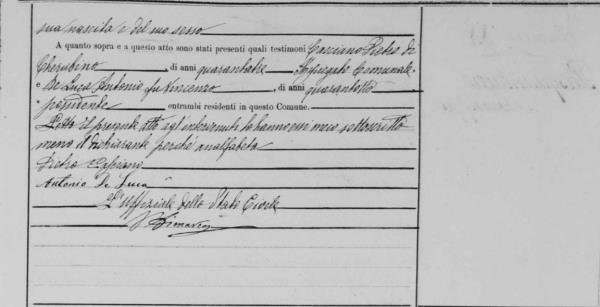 sua nascita e del suo sesso
A quanto sopra e a questo atto sono stati presenti quali testimoni Cassiano Pietro di
Cherubino, di anni quarantatre Impiegato Comunale,
e De Luca Antonio fu Vincenzo, di anni quarantotto
possidente entrambi residenti in questo Comune.
Letto il presente atto agl'intervenuti lo hanno essi meco sottoscritto
meno il dichiarante perché analfabeta
Pietro Cassiano
Antonio De Luca
L'Uffiziale dello Stato Civile